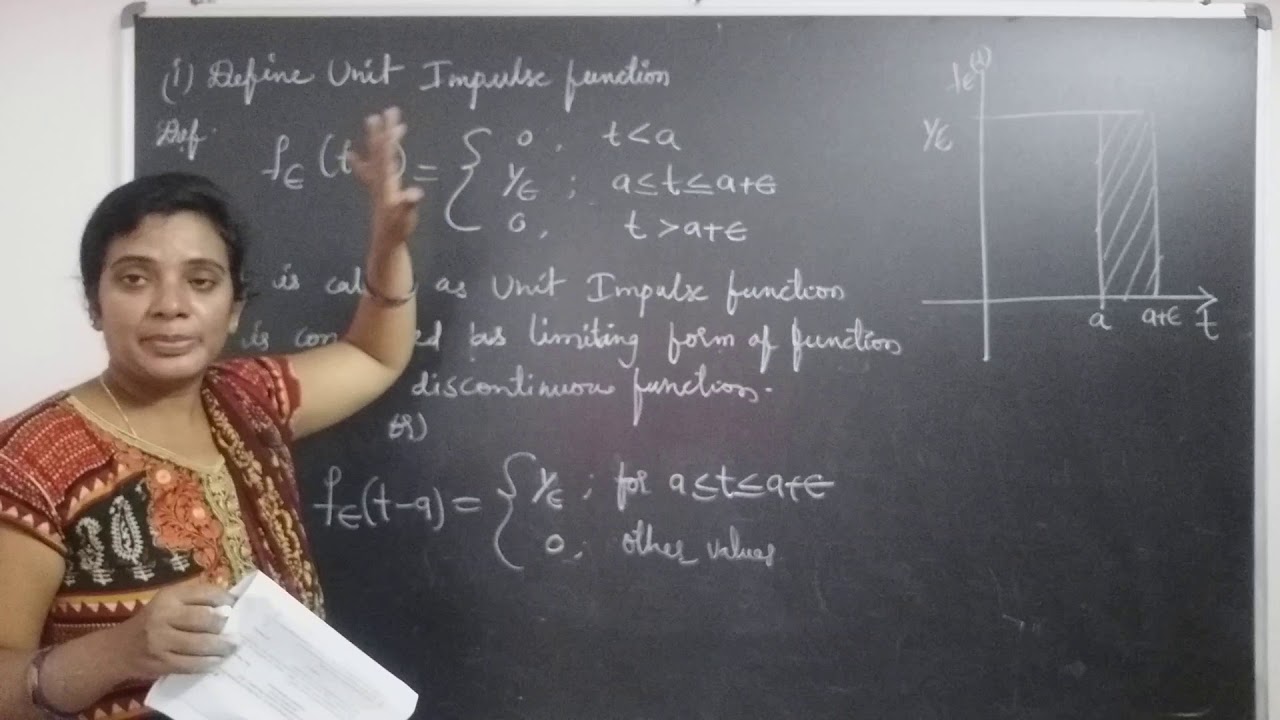 (i) Define Unit Impulse function
Def:
fϵ (t = { 0, t < a
1/ϵ ; a ≤ t ≤ a+ϵ
0, t > a+ϵ
is as Unit Impulse function
is as limiting form of function
discontinuous function.
(or)
fϵ(t-a) = { 1/ϵ ; for a ≤ t ≤ a+ϵ
0; other values
fϵ(t)
1/ϵ
a a+ϵ t